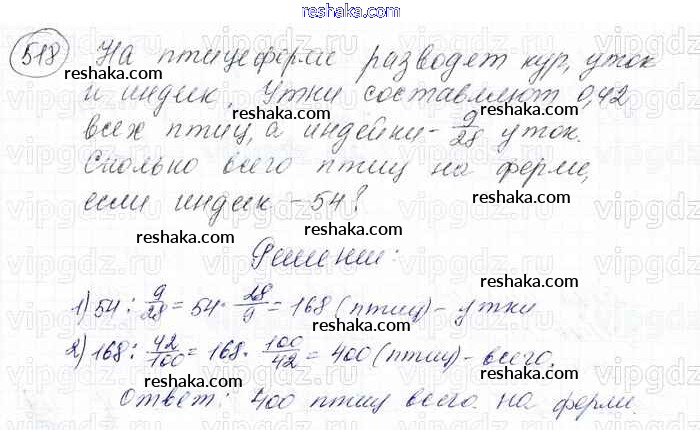 reshaka.com
518 На птицеферме разводят кур, уток
reshaka.com
и индеек. Утки составляют 0,42
всех птиц, а индейки - 9/28 уток.
reshaka.com
Сколько всего птиц на ферме,
если индеек - 54?
reshaka.com
reshaka.com
Решение:
reshaka.com
1) 54 : 9/28 = 54 · 28/9 = 168 (птиц) - утки
reshaka.com
2) 168 : 42/100 = 168 · 100/42 = 400 (птиц) - всего.
reshaka.com
reshaka.com
Ответ: 400 птиц всего на ферме.
reshaka.com